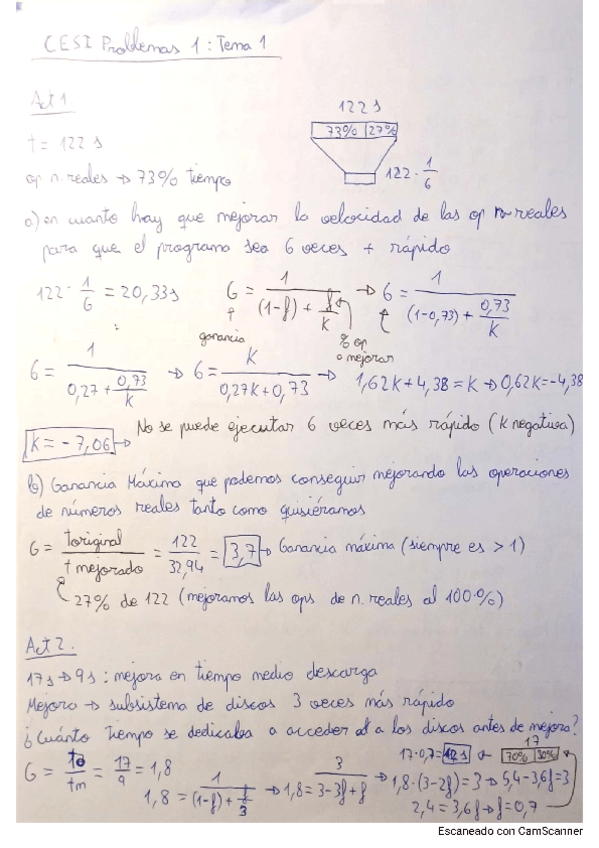 CESI Problemas 1: Tema 1
Act 1
t = 122 s
op n. reales → 73% tiempo
122 s
73% 27%
122 · 1/6
a) en cuanto hay que mejorar la velocidad de las op n reales
para que el programa sea 6 veces + rápido
122 · 1/6 = 20,33s G = 1/((1-f) + f/k) → 6 = 1/((1-0,73) + 0,73/k)
ganancia
% op
a mejorar
6 = 1/(0,27 + 0,73/k) → 6 = k/(0,27k + 0,73) → 1,62k + 4,38 = k → 0,62k = -4,38
k = -7,06 → No se puede ejecutar 6 veces más rápido (k negativa)
b) Ganancia Máxima que podemos conseguir mejorando las operaciones
de números reales tanto como quisiéramos
G = toriginal/t mejorado = 122/32,94 = 3,7 → Ganancia máxima (siempre es > 1)
27% de 122 (mejoramos las ops de n. reales al 100%)
Act 2.
17s → 9s : mejora en tiempo medio descarga
Mejora → subsistema de discos 3 veces más rápido
¿Cuánto tiempo se dedicaba a acceder a los discos antes de mejora?
17
17·0,7 = 12 s ← 70% 30%
G = to/tm = 17/9 = 1,8
1,8 = 1/((1-f) + f/3) → 1,8 = 3/(3-3f+f) → 1,8·(3-2f) = 3 → 5,4-3,6f = 3
2,4 = 3,6f → f = 0,7
Escaneado con CamScanner